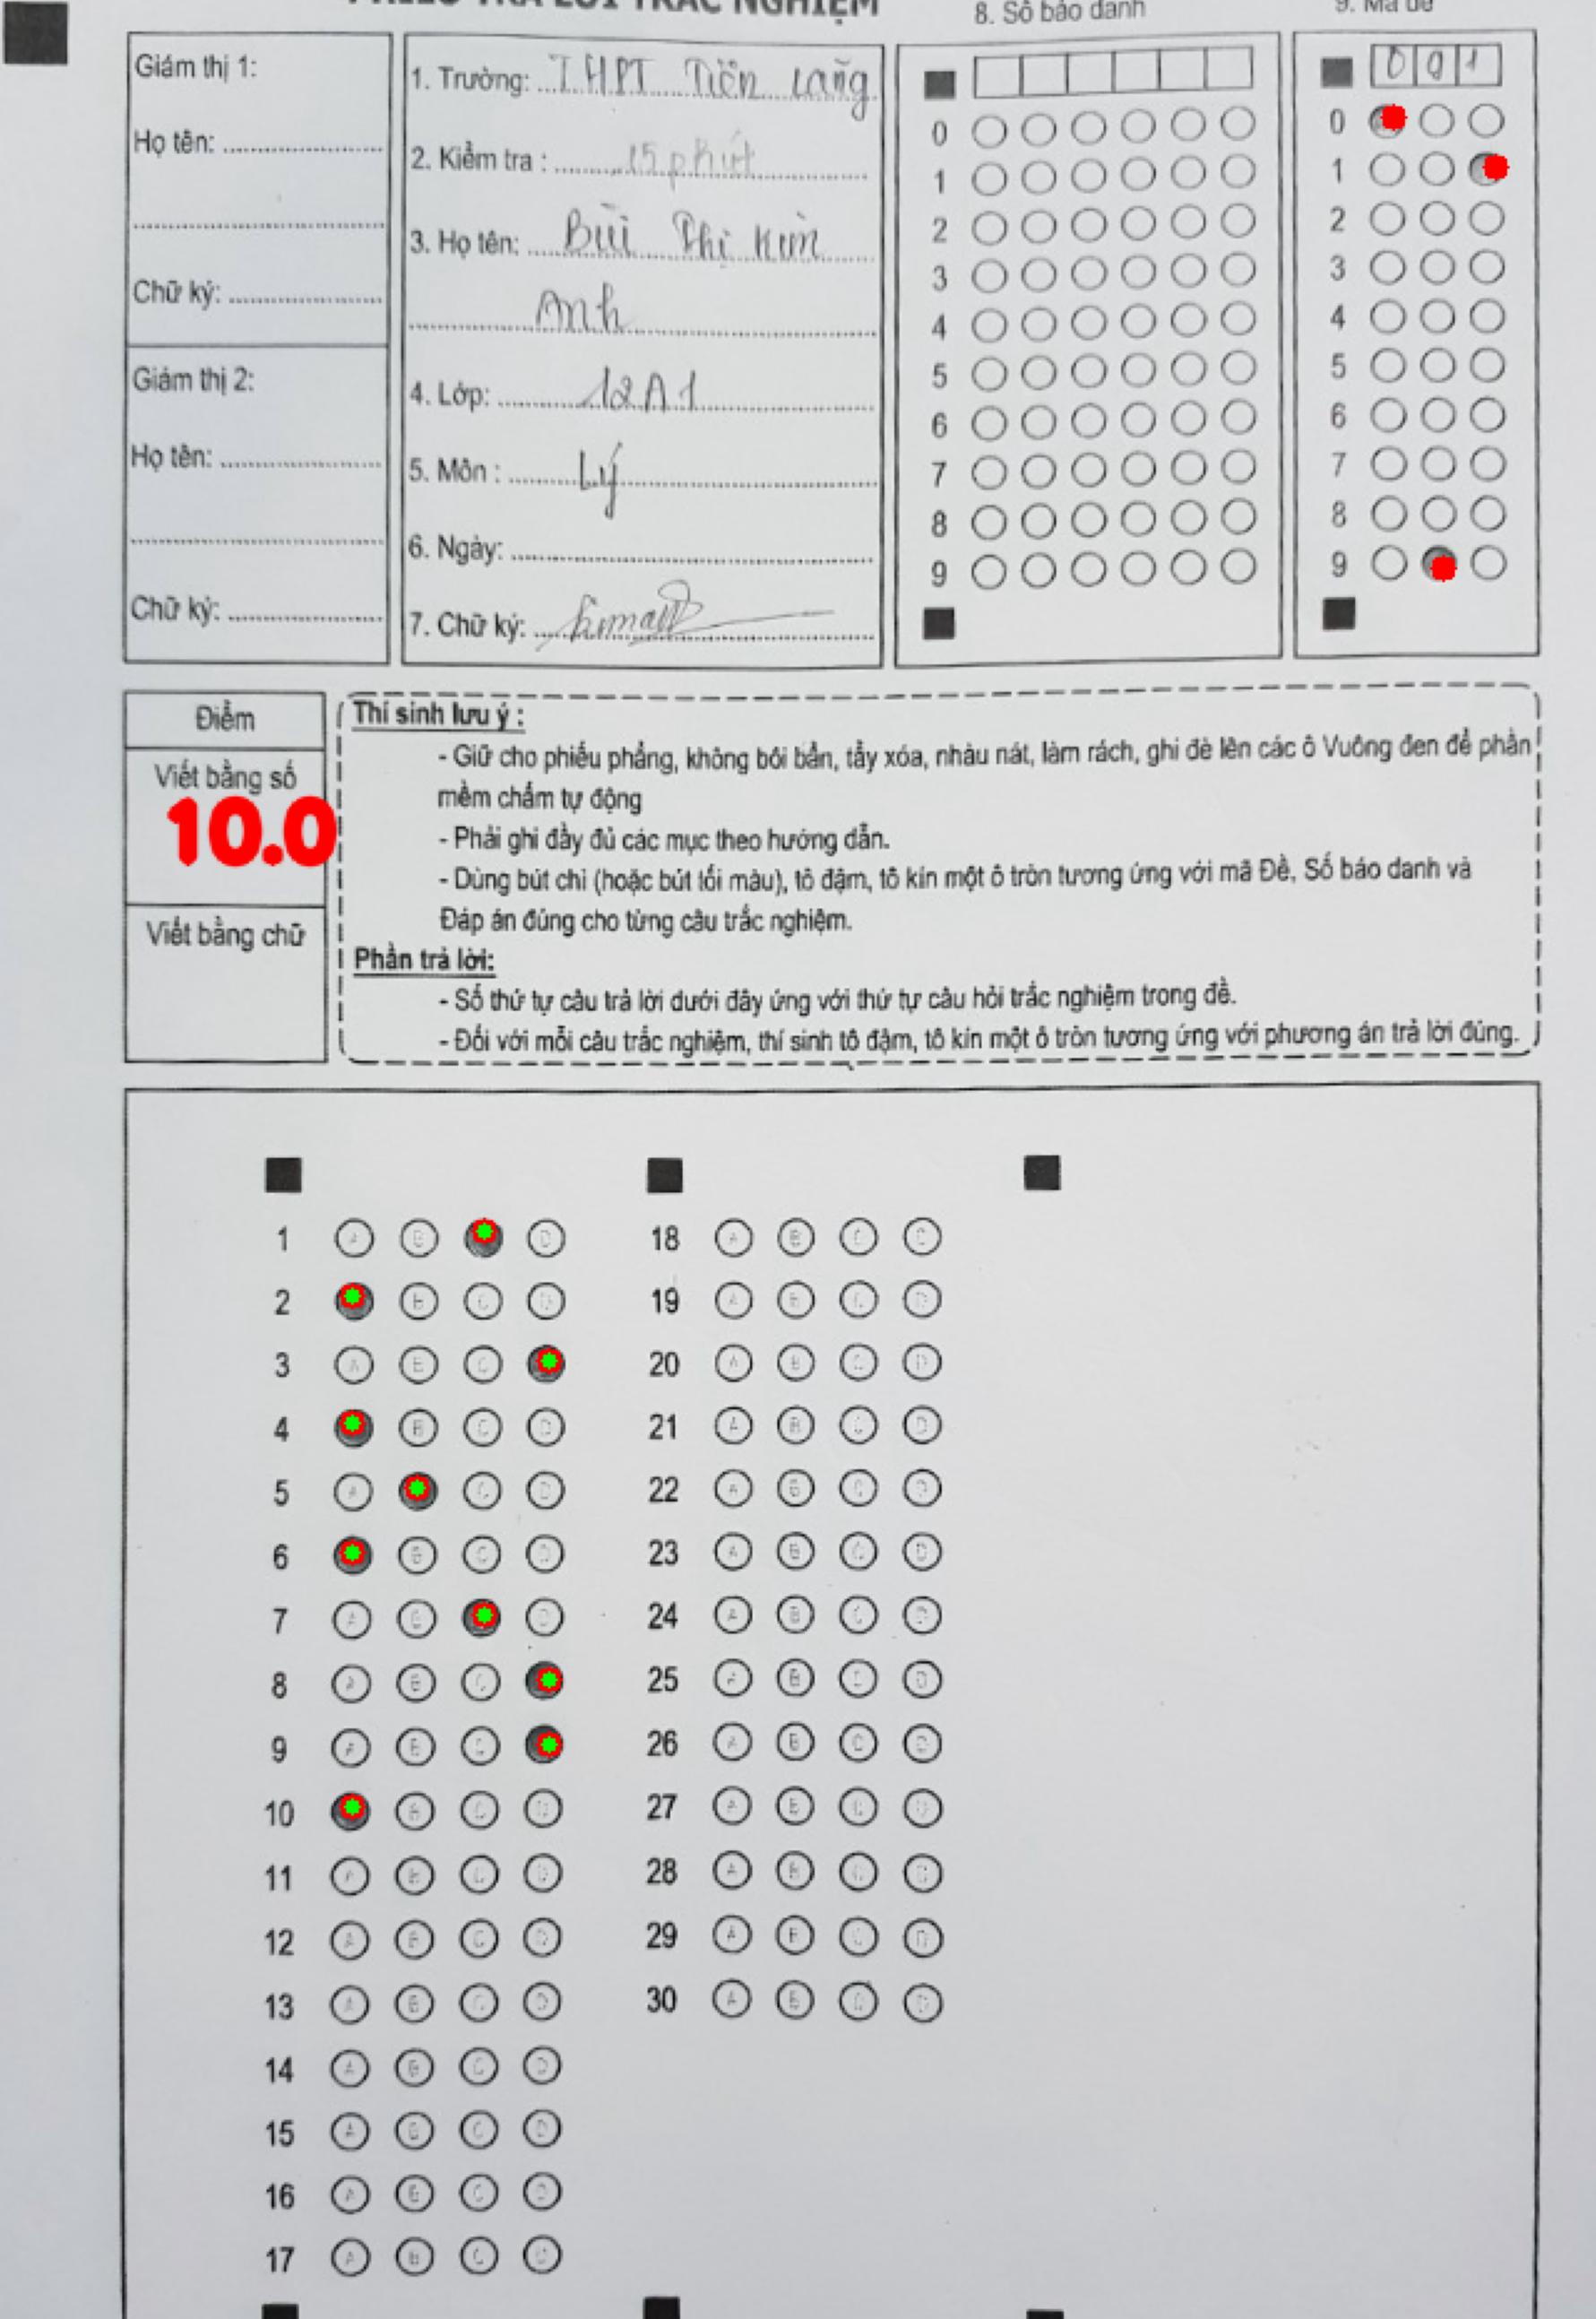 PHIẾU TRẢ LỜI TRẮC NGHIỆM
8. Số báo danh
9. Mã đề
Giám thị 1:
Họ tên:
Chữ ký:
Giám thị 2:
Họ tên:
Chữ ký:
1. Trường: THPT Tiên Lãng
2. Kiểm tra : 15 phút
3. Họ tên: Bùi Thị Kim
Anh
4. Lớp: 12A1
5. Môn : Lý
6. Ngày:
7. Chữ ký: Kimanh
0
1
2
3
4
5
6
7
8
9
0 9 1
0
1
2
3
4
5
6
7
8
9
Điểm
Viết bằng số
10.0
Viết bằng chữ
Thí sinh lưu ý :
- Giữ cho phiếu phẳng, không bôi bẩn, tẩy xóa, nhàu nát, làm rách, ghi đè lên các ô Vuông đen để phần
mềm chấm tự động
- Phải ghi đầy đủ các mục theo hướng dẫn.
- Dùng bút chì (hoặc bút tối màu), tô đậm, tô kín một ô tròn tương ứng với mã Đề, Số báo danh và
Đáp án đúng cho từng câu trắc nghiệm.
Phần trả lời:
- Số thứ tự câu trả lời dưới đây ứng với thứ tự câu hỏi trắc nghiệm trong đề.
- Đối với mỗi câu trắc nghiệm, thí sinh tô đậm, tô kín một ô tròn tương ứng với phương án trả lời đúng.
1 A B D
2 B C D
3 A B C
4 B C D
5 A C D
6 B C D
7 A B D
8 A B C
9 A B C
10 B C D
11 A B C D
12 A B C D
13 A B C D
14 A B C D
15 A B C D
16 A B C D
17 A B C D
18 A B C D
19 A B C D
20 A B C D
21 A B C D
22 A B C D
23 A B C D
24 A B C D
25 A B C D
26 A B C D
27 A B C D
28 A B C D
29 A B C D
30 A B C D